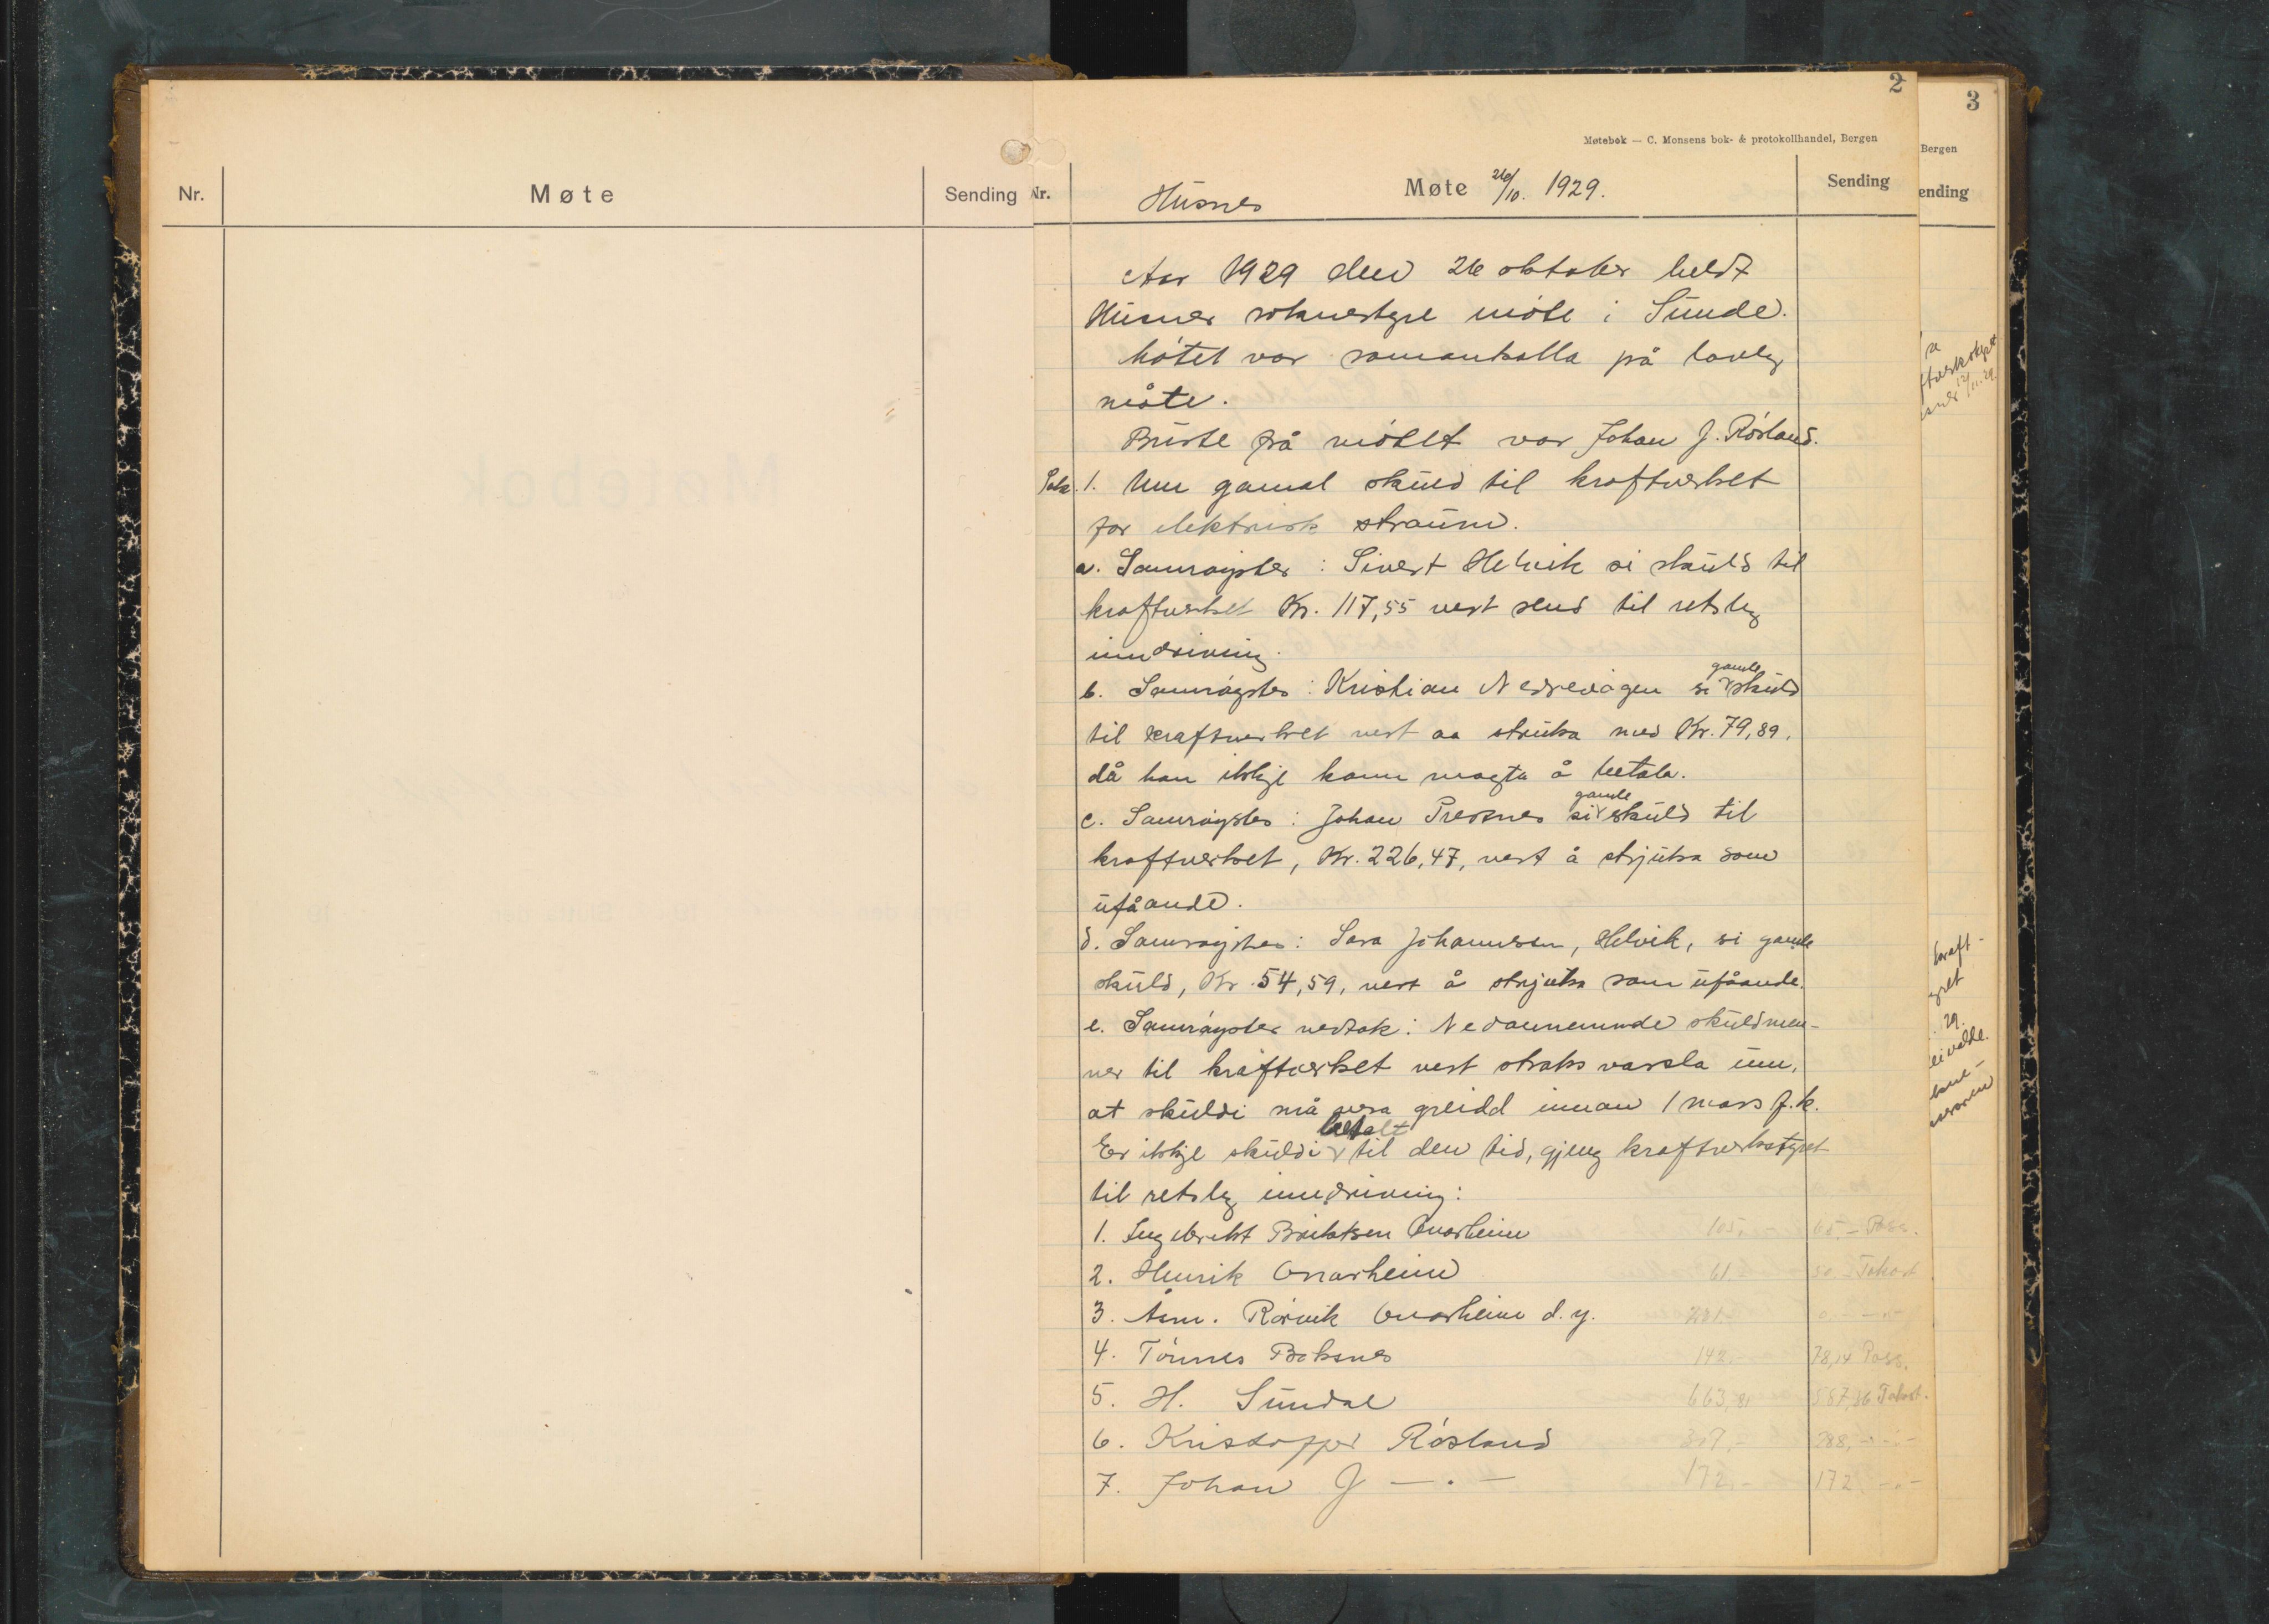 Nr.
Møte
Sending
2
Møtebok — C. Monsens bok- & protokollhandel, Bergen
Nr.
Husnes
Møte 26/10. 1929.
Sending
Aar 1929 den 26 oktober heldt
Husnes soknestyre møte i Sunde.
Møtet var samankalla på lovleg
måte.
Buste på møtet var Johan J. Røsland.
Sak. 1. Um gamal skuld til kraftverket
for elektrisk straum.
a. Samrøystes: Sivert Helvik si skuld til
kraftverket Kr. 117,55 vert send til retsleg
inndriving.
b. Samrøystes: Kristian Nedrevågen si gamle skuld
til kraftverket vert aa struka med Kr. 79,89,
då han ikkje kann magta å betala.
c. Samrøystes: Johan Presnes si gamle skuld til
kraftverket, Kr. 226,47, vert å strjuka som
ufåande.
d. Samrøystes: Sara Johannesen, Helvik, si gamle
skuld, Kr. 54,59, vert å strjuka som ufåande.
e. Samrøystes vedtak: Nedannemnde skuldmen-
ner til kraftverket vert straks varsla um,
at skuldi må vera greidd innan 1 mars f.k.
Er ikkje skuldi betalt til den tid, gjeng kraftverkstyret
til retsleg inndriving:
1. Ingebrikt Briktsen Onarheim 105,- 65,- Pass.
2. Henrik Onarheim 61 50,- Takst
3. Åsm. Rørvik Onarheim d.y. 221-
4. Tønnes Boksnes 142.- 78,14 Pass.
5. H. Sundal 663,81 587,36 Takst.
6. Kristoffer Røsland 307,- 288,- -"-
7. Johan J -"- 172,- 172 -"-
3
Bergen
ending
ftverkstyret
12/11.29.
kraft-
gret
29.